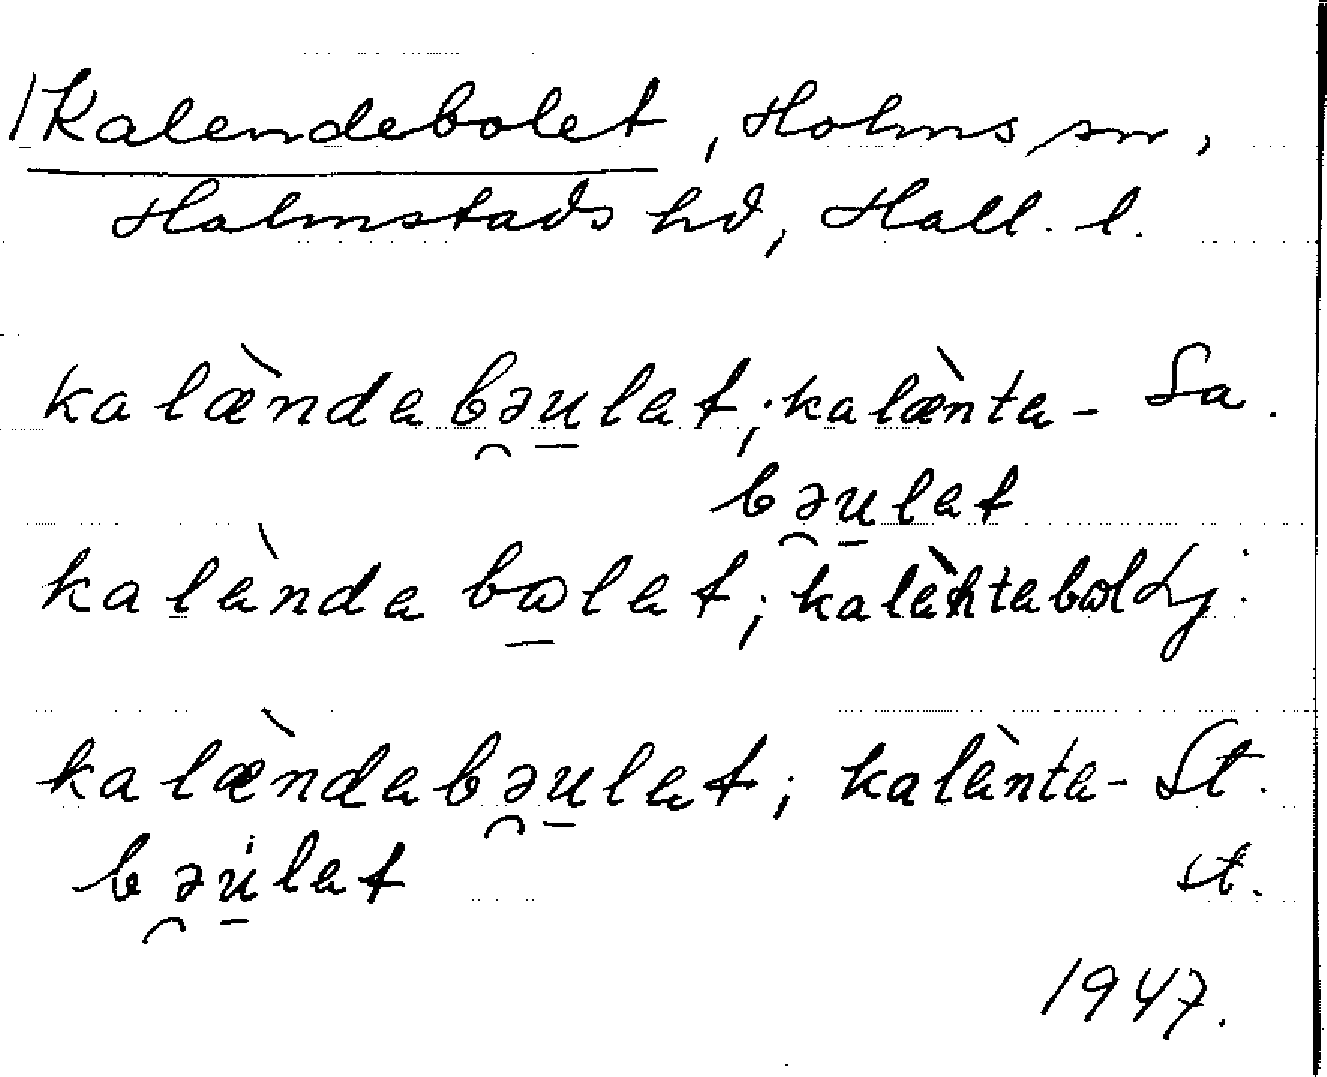 /Kalendebolet, Holms sn,
Halmstads hd, Hall. l.
kalæ̀ndabəu̲lat; kalæ̀nta- Sa.
bəu̲lat
kalèndabω̲lat; kalèntabωl Lj.
kalæ̀ndabəu̲lat; kalènta- St.
bəu̲lat st.
1947.